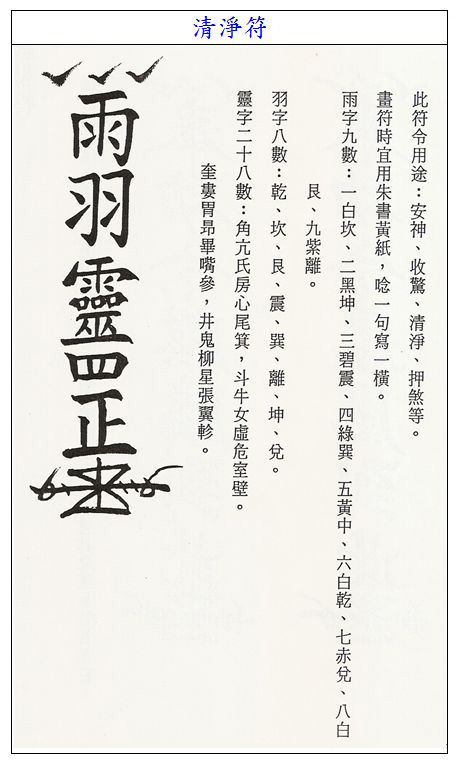 清淨符
此符令用途：安神、收驚、清淨、押煞等。
畫符時宜用朱書黃紙，唸一句寫一橫。
雨字九數：一白坎、二黑坤、三碧震、四綠巽、五黃中、六白乾、七赤兌、八白
艮、九紫離。
羽字八數：乾、坎、艮、震、巽、離、坤、兌。
靈字二十八數：角亢氐房心尾箕，斗牛女虛危室壁。
奎婁胃昴畢嘴參，井鬼柳星張翼軫。
雨羽靈罡